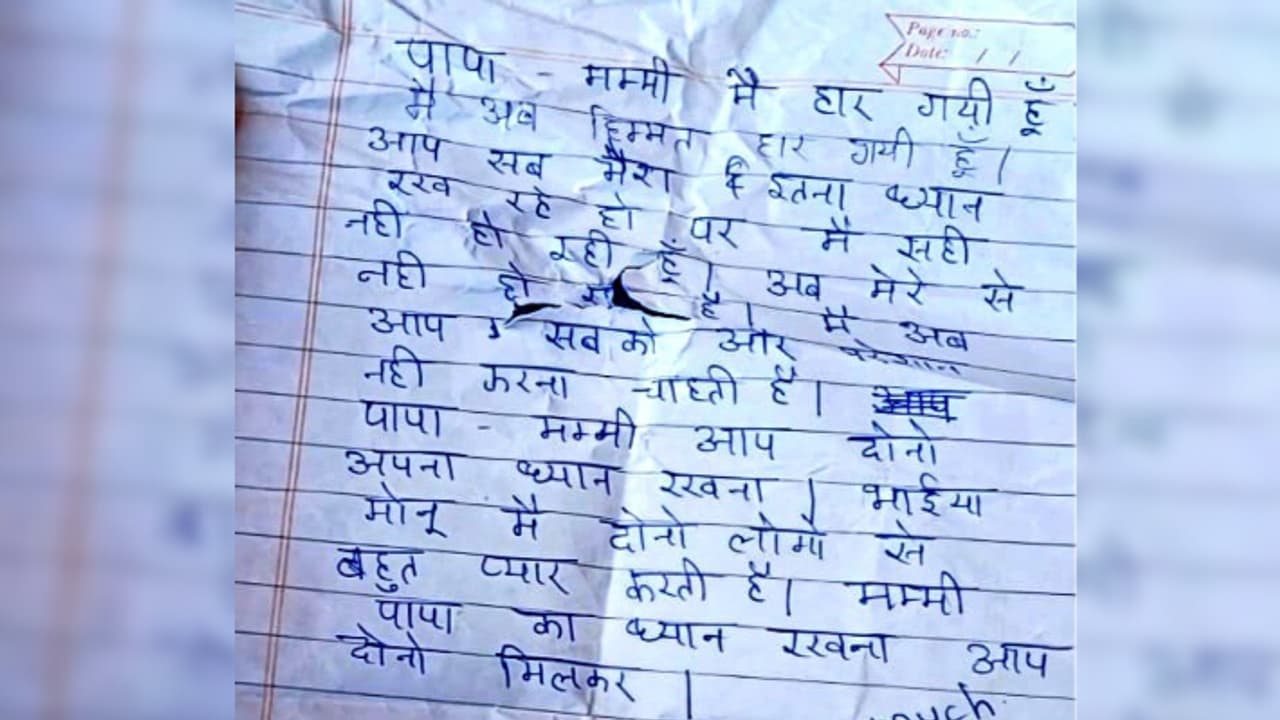 Page no.:
Date: / /
पापा - मम्मी मै हार गयी हूँ
मै अब हिम्मत हार गयी हूँ।
आप सब मेरा इतना ध्यान
रख रहे हो पर मै सही
नही हो रही हूँ। अब मेरे से
नही हो है। मै अब
आप सबको और परेशान
नही करना चाहती है।
पापा - मम्मी आप दोनो
अपना ध्यान रखना। भाईया
मोनू मै दोनो लोगो से
बहुत प्यार करती है। मम्मी
पापा का ध्यान रखना आप
दोनो मिलकर।